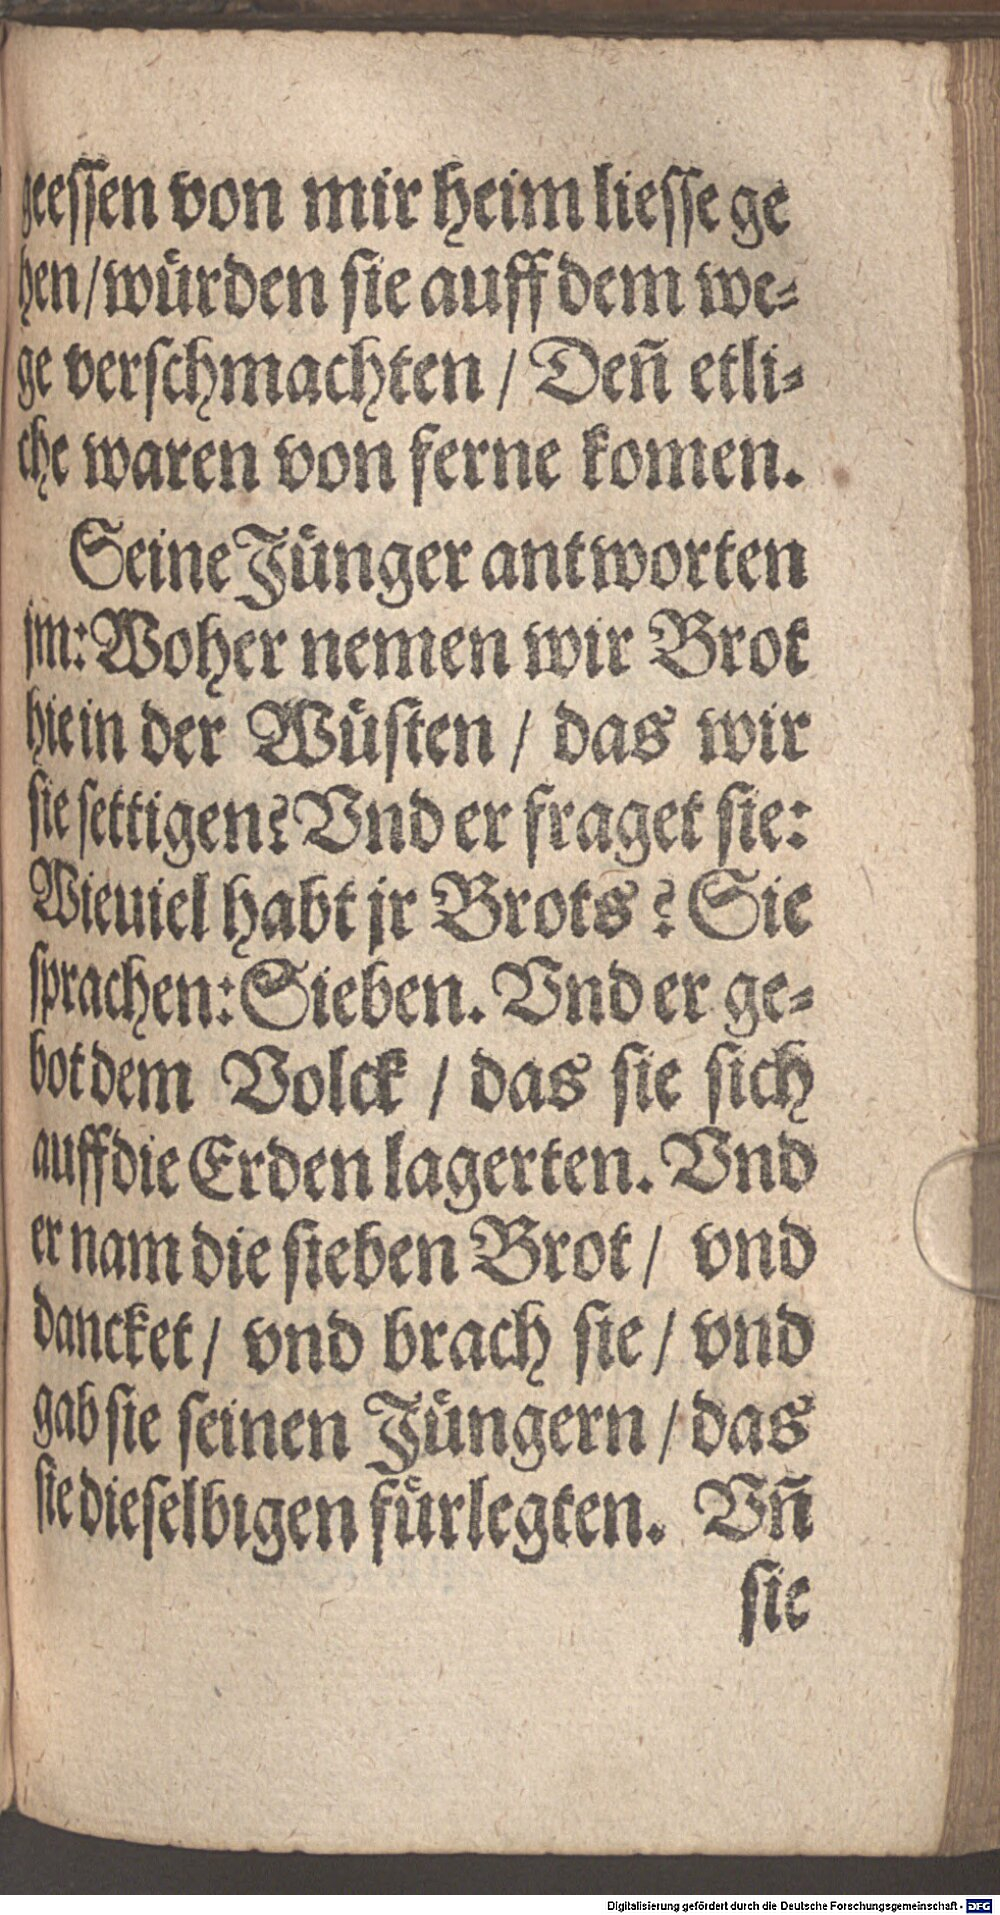 geessen von mir heim liesse ge
hen/würden sie auff dem we⸗
ge verschmachten / Deñ etli⸗
che waren von ferne komen.
Seine Jünger antworten
jm: Woher nemen wir Brot
hie in der Wüsten / das wir
sie settigen? Vnd er fraget sie:
Wieuiel habt jr Brots? Sie
sprachen: Sieben. Vnd er ge⸗
bot dem Volck / das sie sich
auff die Erden lagerten. Vnd
er nam die sieben Brot / vnd
dancket / vnd brach sie / vnd
gab sie seinen Jüngern / das
sie dieselbigen fürlegten. Vñ
sie
Digitalisierung gefördert durch die Deutsche Forschungsgemeinschaft - DFG